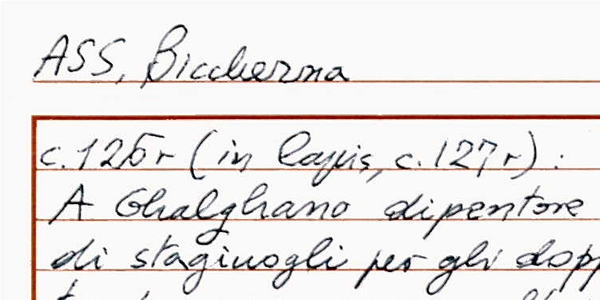 ASS, Biccherna
c. 126r (in lapis, c. 127r):
A Ghalghano dipentore
di stagiuogli per gli dopp